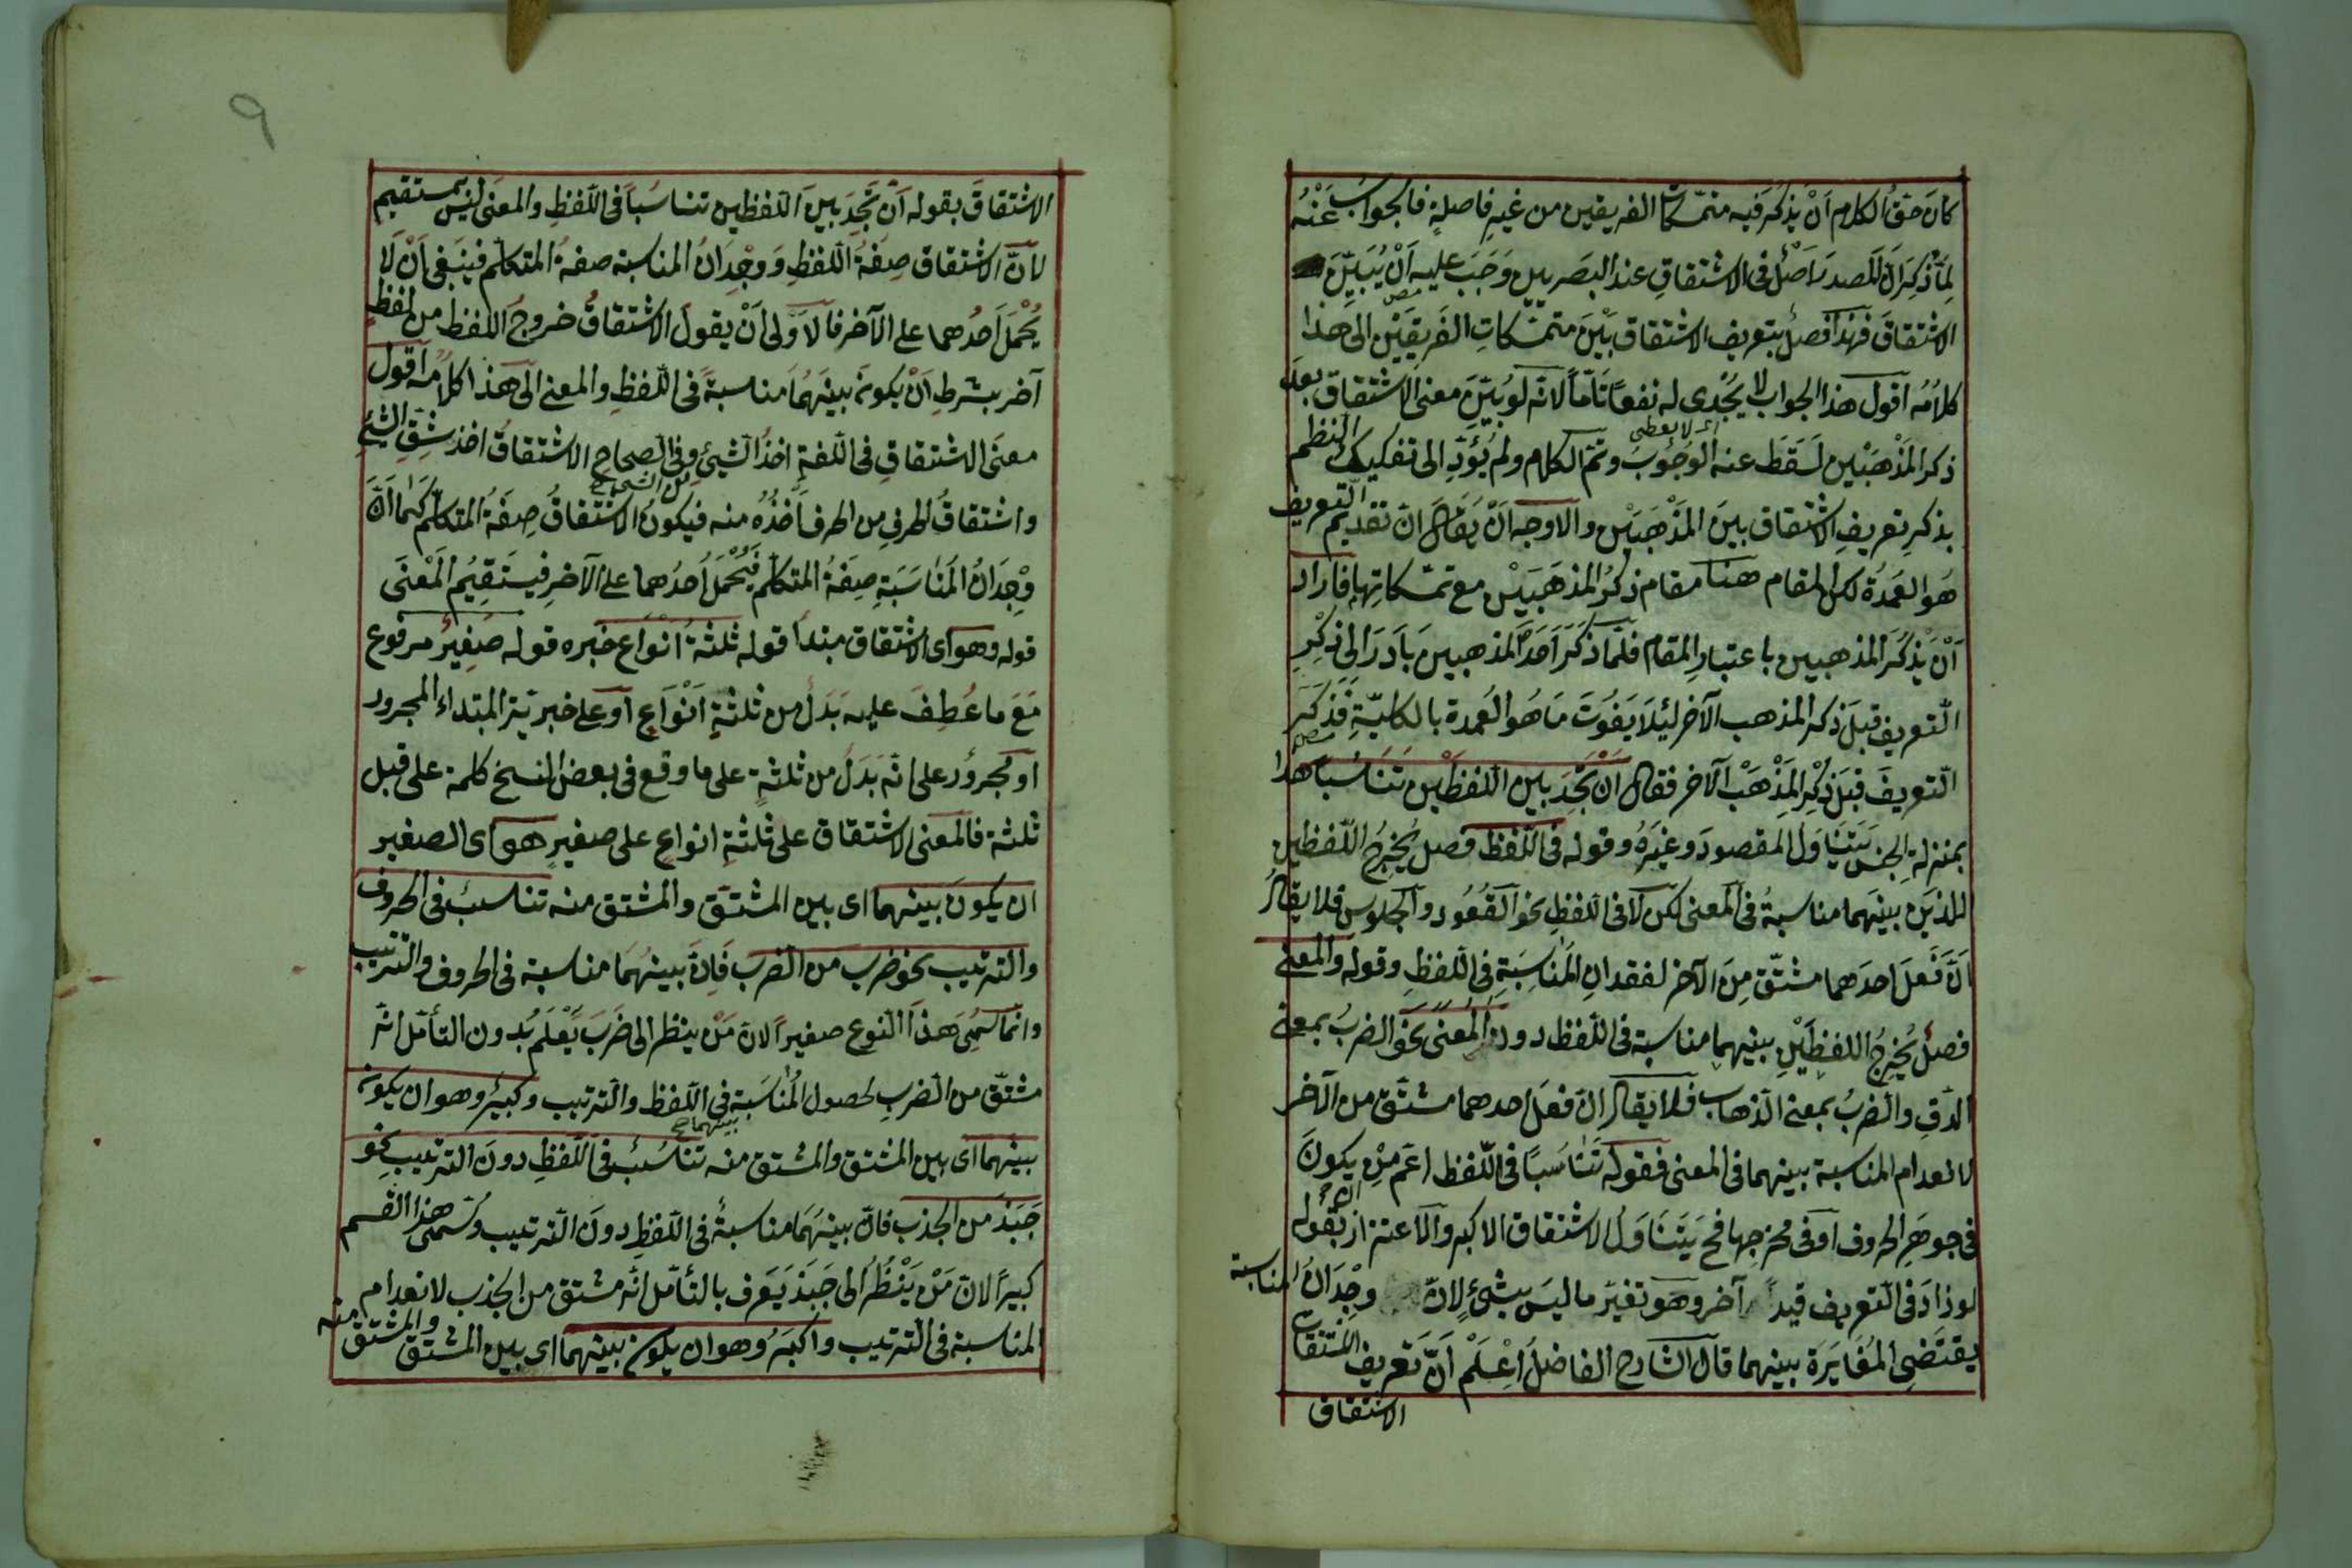 كانَ حقُّ الكلام اَنْ يذكَر فيه متمسّكات الفريقين من غيرِ فاصلةٍ فالجوابُ عَنْهُ
لمّا ذُكِرَ انّ المصدرَ اصْلٌ فى الاشتقاقِ عند البَصريين وَجَبَ عليه اَنْ يُبَيِّنَ
الاشتقاقَ فهذا فصلٌ بتعريف الاشتقاق بَيْنَ متمسّكاتِ الفَرِيقَيْنِ الى هذا
كلامُه اقول هذا الجواب لا يُجْدى له نفعًا تامّاً لانّه لو بُيّنَ معنى الاشتقاق بعدَ
اى لا يعطى
ذكر المَذْهَبَيْن لَسَقَطَ عنه الوُجُوبَ وتمّ الكلام ولم يُؤَدِّ الى تفكيك النظم
بذكرِ تعريفِ الاشتقاق بينَ المَذْهَبَيْن والاوجه اَنْ يُقَالَ انّ تقديم التعريف
هُوَ العُمدَةُ لكن المقام هنا مقام ذكرُ المذهَبَيْن مع تمسّكاتِها فاراد
اَنْ يَذْكُرَ المذهبين باعتبارِ المقام فلمّا ذَكَرَ اَحَدَ المَذهبينَ بَادَرَ الى ذِكْرِ
التّعريف قبلَ ذكر المذهب الآخر لِئَلّا يَفُوتَ مَا هُوَ العُمدة بالكليّةِ فَذَكَرَ
التّعريفَ قبلَ ذِكْرِ المَذْهَبْ الآخر فقال اَنْ تَجِدَ بين اللفظَيْن تَنَاسُباً هذا
بمنزلة الجنس يَتَنَاوَلُ المقصودَ وغيَرهُ وقوله فى اللّفظ فصل يُخرِجُ اللّفظين
اللذيَن بينَهما مناسبةُ فى المعنى لكن لا فى اللفظِ نحو القُعُود والجلوس فلا يقالُ
اَنّ فَعلَ احدَهما مشتّق مِنَ الآخر لفقدانِ المُناسَبَةِ فى اللفظِ وقوله والمعنى
فصلٌ يُخرِجُ اللفظَيْنِ بينهما مناسبة فى اللّفظ دون المعنى نحْوَ الضربُ بمعنى
الدّقِ والضربُ بمعنى الذهاب فلا يقال انّ فعَل احدهما مشتَق من الآخر
لانعدام المناسبة بينهما فى المعنى فقوله تَنَاسُبًا فى اللّفظ اعَم مِنْ يكونَ
فى جوهَرِ الحروف اَوْ فى مخرجها فح يَتَنَاوَلُ الاشتقاق الاكبر والاعتراز بقوله
لو زادَ فى التّعريف قيداً آخر وهو تغيّر ما ليسَ بشئٍ لانّ وِجْدَانُ المناسبة
يقتَضِى المُغَايَرَة بينهما قال الشارح الفاضلُ اِعْلَمْ اَنّ تَعريف المشتقات
الاشتقاق
٩
الاشتقاقَ بقوله اَنْ تَجِدَ بينَ اللّفظين تناسُباً فى اللّفظِ والمعنى ليس بمستقيم
لانّ الاشتقاق صِفةُ اللّفظِ وَوِجْدَانُ المناسبة صفةُ المتكلّم فينبَغى اَنْ لَا
يُحْمَلَ اَحدُهما على الآخر فالاَوّلى اَنْ يقولَ الاشتقاقُ خروجُ اللفظ من لفظٍ
آخر بشرطِ اَنْ يكونَ بينَهُمَا مناسبةً فى اللّفظِ والمعنى الى هذا كلامُه اَقول
معنَى الاشتقاقِ فى اللّغةِ اخذُ الشّيئِ وفى الصحاح الاشتقاقُ اخذ شِقِّ الشّئِ
من الشئ صح
واشتقاقُ الحرفِ من الحرف اَخْذُهُ منه فيكونُ الاشتقاقُ صِفةُ المتكلّم كمَا اَنّ
وِجْدَانُ المُنَاسَبَةِ صِفَةُ المتكلّم فَيُحْمَلُ اَحدُهما على الآخرِ فيستَقِيْمُ المَعْنَى
قوله وهو اى الاشتقاق مبتدأ قوله ثلثةُ انْوَاع خبره قوله صَغيرُ مرفوع
مَعَ ما عُطِفَ عليه بَدَلٌ من ثلثةٍ اَنْوَاعٍ اَو على خبريّة المبتداء المجرور
او مجرورٌ على انّه بَدَلٌ من ثلثةٍ على ما وقع فى بعض النسخ كلمة على قبل
ثلثة فالمعنى الاشتقاق على ثَلثةِ انواعٍ على صغيرٍ هو اى الصغير
ان يكونَ بينهما اى بين المشتَق والمشتق منه تناسبٌ فى الحروف
والترتيب نحو ضرب من الضرب فَاِنّ بينهُمَا مناسبة فى الحروف والترتيب
وانّما سُمِىَ هذا النوع صغيراً لانّ مَنْ ينظر الى ضَرَبَ يَعْلَمُ بُدون التأمّل انّه
مشتّق من الضربِ لحصول المُنَاسَبَة فى اللّفظ والترتيب وكبيرٌ وهو ان يكونَ
بينهما صح
بينهما اى بين المشتق والمشتق منه تناسُبٌ فى اللّفظِ دونَ الترتيب نحو
جَبَذَ من الجذب فانّ بينهُمَا مناسبةٌ فى اللّفظِ دونَ التّرتيب وسُمّى هذا القسم
كبيرًا لانّ مَنْ يَنْظُرُ الى جَبَذَ يَعرف بالتأمّل انّه مشتق من الجذب لانعدام
المناسبة فى التّرتيب واَكبَرُ وهو ان يكون بينهما اى بين المشتق والمشتق منه